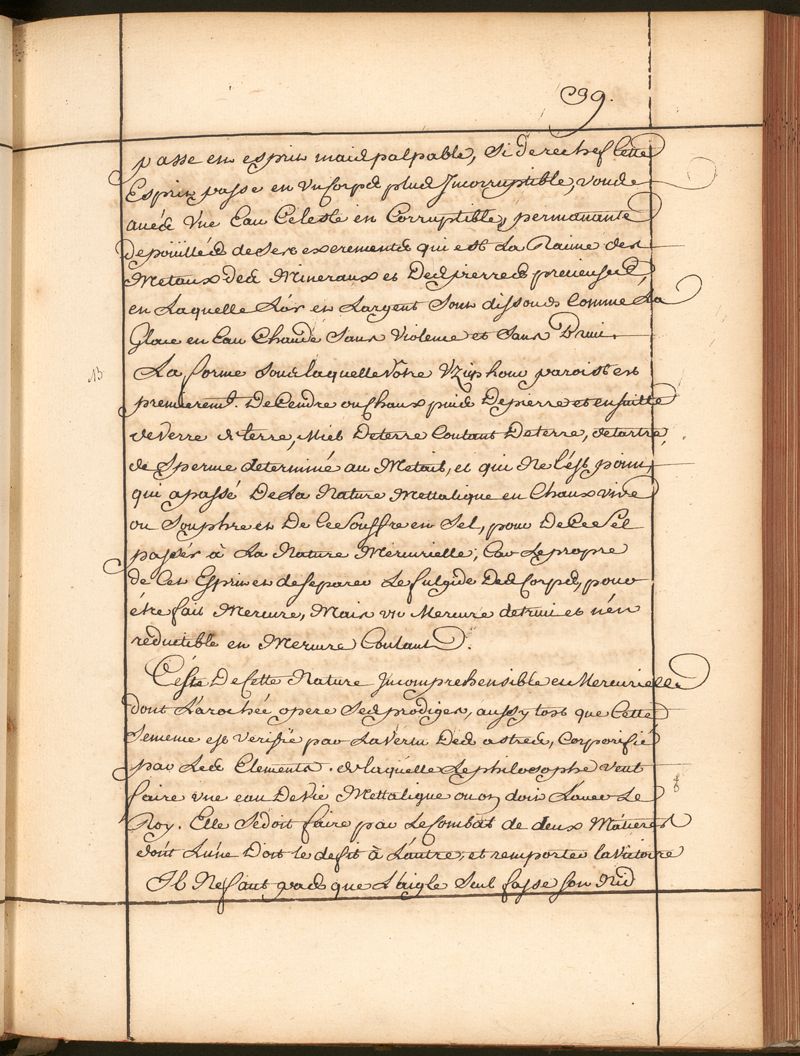 39.
passe en esprit mais palpable, si derechef Cette
Esprit passe en un Corps plus Incorruptible, vous
avés Vne Eau Celeste en Corruptible, permanante
depoüillées de ses excrements qui est La Raime des
Metaux des Mineraux et Des pierres precieuses,
en Laquelle L'or et L'argent sont dissouds Comme La
Glace en Eau Chaude Sans Violence et Sans Bruit.
La forme sous laquelle Votre Uziphour paroist est
premieremt. De Cendre ou Chaux puis De pierre et ensuitte
de Verre de terre, Miel De terre Coulant De terre, de tartre,
de Sperme determiné au Metail, et qui Ne l'est point,
qui a passé De La Nature Mettalique en Chaux vive
ou Souphre et De Ce Souffre en Sel, pour De Ce Sel
passer à La Nature Mercurielle, Car Le propre
de Cet Esprit et de separer Le fulgide Des Corps, pour
être fait Mercure, Mais un Mercure detruit et n'en
reductible en Mercure Coulant.
C'est De Cette Nature Incomprehensible et Mercurielle
dont L'arochée opere Ses prodiges, aussy tost que Cette
Semence est Verifiée par La Vertu Des astres, Corporifié
par Les Elements. de laquelle Le philosophe Veut
faire une eau De Vie Mettalique ou on doit Laver Le
Roy. Elle Se doit faire par Le Combat de deux Matieres
dont L'une Doit le defit à L'autre, et remporter la Victoire
Il Ne faut pas que L'aigle Seul fasse son Nid